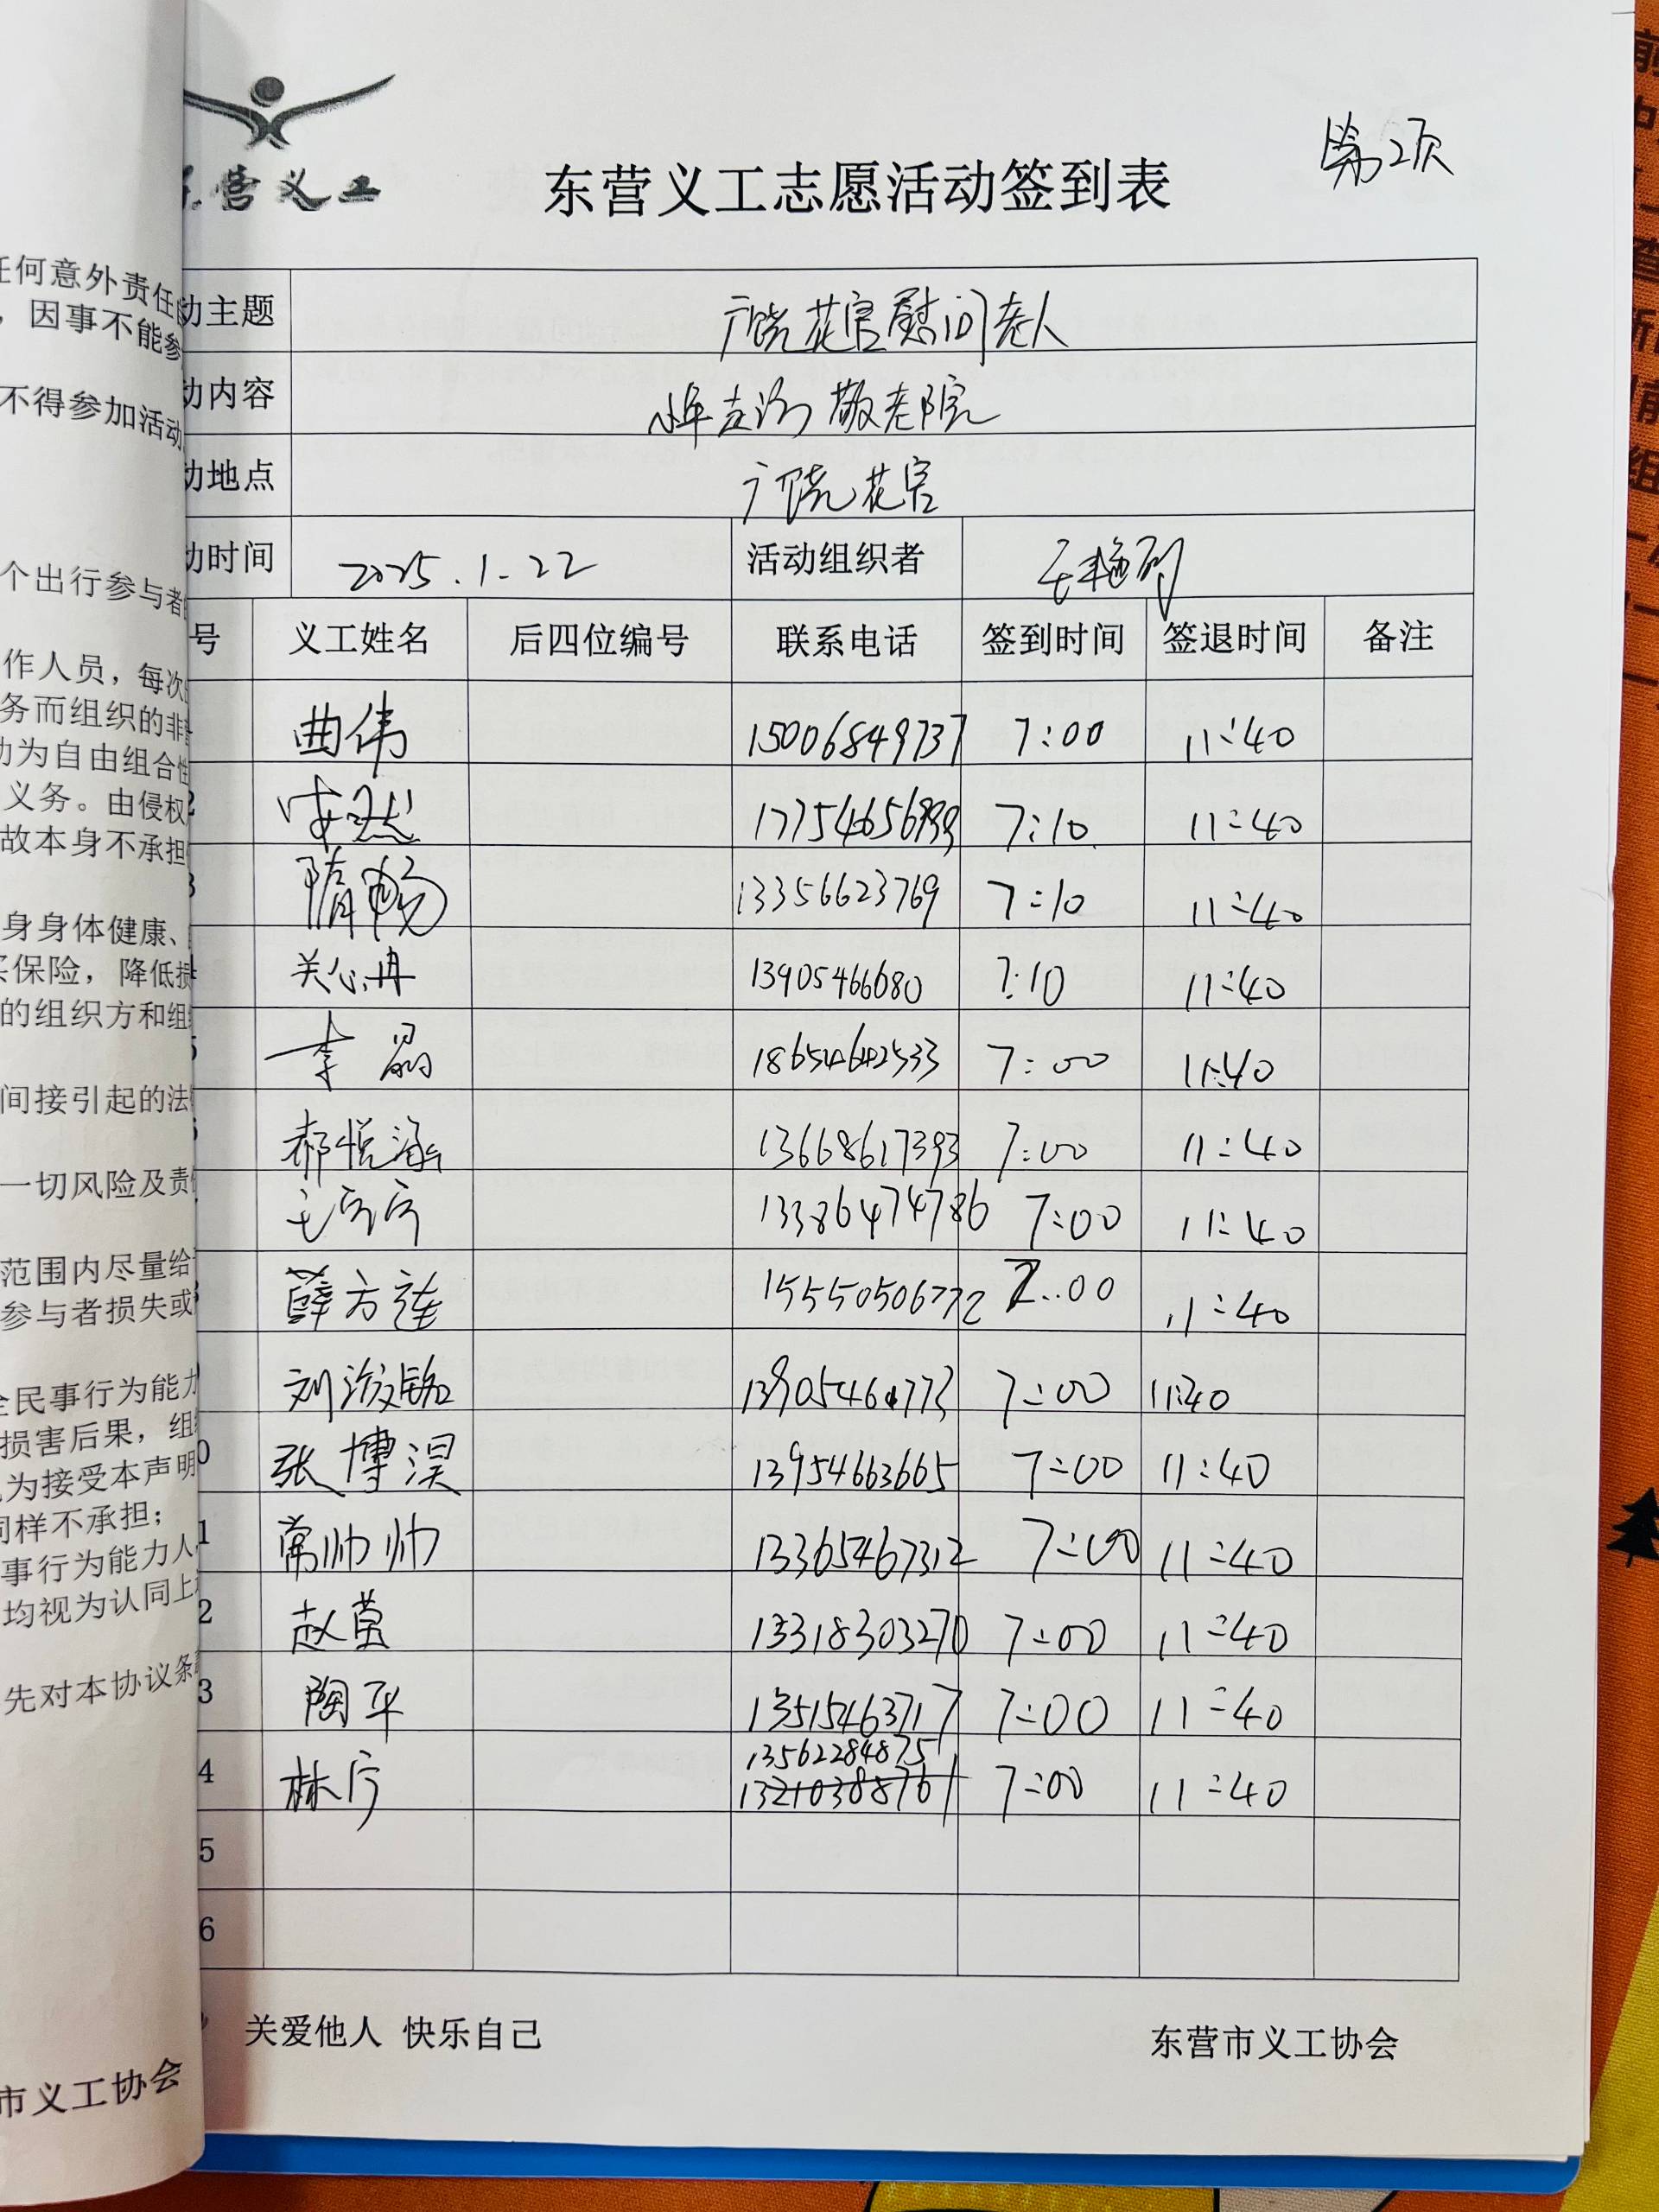 东营义工
东营义工志愿活动签到表
第2页
动主题 广饶花官慰问老人
动内容 敬老院
动地点 广饶花官
动时间 2025.1.22 活动组织者
号 义工姓名 后四位编号 联系电话 签到时间 签退时间 备注
曲伟 15006849737 7:00 11:40
2 7:10 11:40
3 隋畅 13356623769 7:10 11:40
关心冉 13905466080 7:10 11:40
5 李晶 18654642533 7:00 11:40
6 郝悦涵 13668617393 7:00 11:40
13386474786 7:00 11:40
薛方莲 15550506772 7:00 11:40
刘 7:00 11:40
0 张博淏 13954663665 7:00 11:40
1 常帅帅 13365467312 7:00 11:40
2 赵 13318303270 7:00 11:40
3 陶平 13515463717 7:00 11:40
13562284875
4 林 13210388761 7:00 11:40
5
6
关爱他人 快乐自己
东营市义工协会
任何意外责任
,因事不能参
不得参加活动
个出行参与者
作人员,每次
务而组织的非
动为自由组合性
义务。由侵权
故本身不承担
身身体健康、
买保险,降低损
的组织方和组
间接引起的法
一切风险及责
范围内尽量给
参与者损失或
全民事行为能力
损害后果,组
为接受本声明
同样不承担;
事行为能力人
均视为认同上
先对本协议条
市义工协会